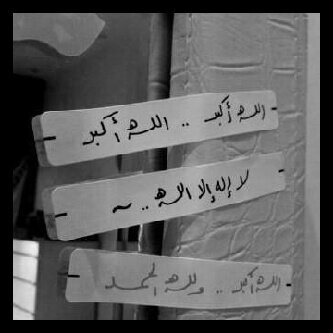 الله أكبر .. الله أكبر
لا إله إلا الله .. ~
الله أكبر .. ولله الحمد